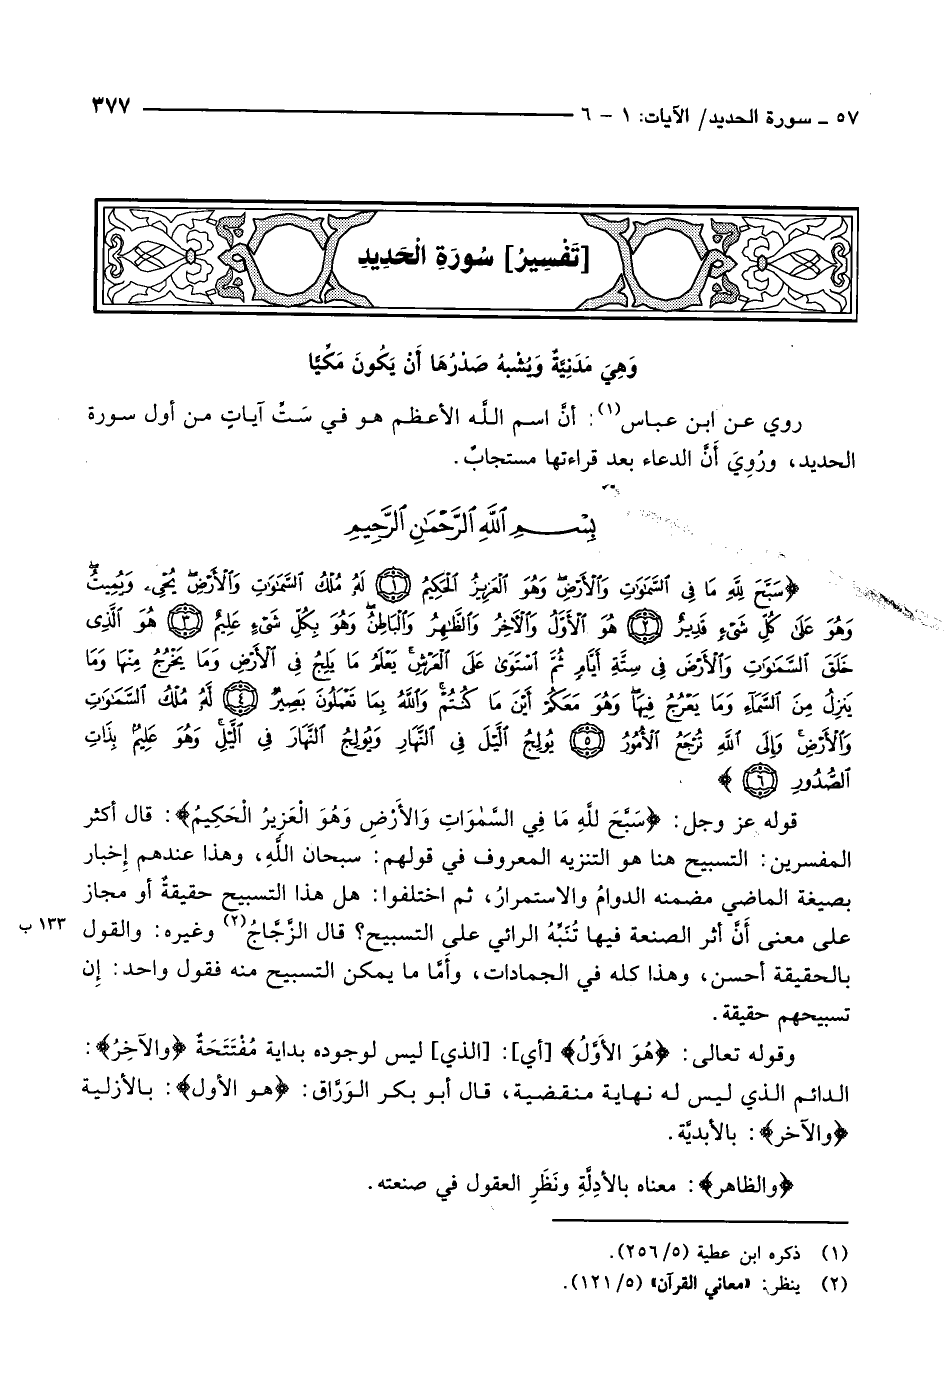 ٥٧ ـ سورة الحديد/ الآيات: ١ - ٦ ٣٧٧
[تَفْسِيرُ] سُورَةِ الْحَدِيدِ
وَهِيَ مَدَنِيَّةٌ وَيُشْبِهُ صَدْرُهَا أَنْ يَكُونَ مَكِّيًّا
روي عن ابن عباس(١): أنَّ اسم اللَّه الأعظم هو في سَتِّ آياتٍ من أول سورة
الحديد، ورُوِيَ أَنَّ الدعاء بعد قراءتها مستجابٌ.
بِسْمِ ٱللَّهِ ٱلرَّحْمَٰنِ ٱلرَّحِيمِ
﴿سَبَّحَ لِلَّهِ مَا فِي ٱلسَّمَٰوَٰتِ وَٱلْأَرْضِۖ وَهُوَ ٱلْعَزِيزُ ٱلْحَكِيمُ ﴿١﴾ لَهُۥ مُلْكُ ٱلسَّمَٰوَٰتِ وَٱلْأَرْضِۖ يُحْيِۦ وَيُمِيتُۖ
وَهُوَ عَلَىٰ كُلِّ شَيْءٍ قَدِيرٌ ﴿٢﴾ هُوَ ٱلْأَوَّلُ وَٱلْآخِرُ وَٱلظَّٰهِرُ وَٱلْبَاطِنُۖ وَهُوَ بِكُلِّ شَيْءٍ عَلِيمٌ ﴿٣﴾ هُوَ ٱلَّذِى
خَلَقَ ٱلسَّمَٰوَٰتِ وَٱلْأَرْضَ فِي سِتَّةِ أَيَّامٍ ثُمَّ ٱسْتَوَىٰ عَلَى ٱلْعَرْشِۚ يَعْلَمُ مَا يَلِجُ فِي ٱلْأَرْضِ وَمَا يَخْرُجُ مِنْهَا وَمَا
يَنزِلُ مِنَ ٱلسَّمَآءِ وَمَا يَعْرُجُ فِيهَاۖ وَهُوَ مَعَكُمْ أَيْنَ مَا كُنتُمْۚ وَٱللَّهُ بِمَا تَعْمَلُونَ بَصِيرٌ ﴿٤﴾ لَهُۥ مُلْكُ ٱلسَّمَٰوَٰتِ
وَٱلْأَرْضِۚ وَإِلَى ٱللَّهِ تُرْجَعُ ٱلْأُمُورُ ﴿٥﴾ يُولِجُ ٱلَّيْلَ فِي ٱلنَّهَارِ وَيُولِجُ ٱلنَّهَارَ فِي ٱلَّيْلِۚ وَهُوَ عَلِيمٌۢ بِذَاتِ
ٱلصُّدُورِ ﴿٦﴾ ﴾
قوله عز وجل: ﴿سَبَّحَ للَّهِ مَا فِي السَّمٰوَاتِ وَالْأَرْضِ وَهُوَ الْعَزِيزُ الْحَكِيمُ﴾: قال أكثر
المفسرين: التسبيح هنا هو التنزيه المعروف في قولهم: سبحان اللَّهِ، وهذا عندهم إخبار
بصيغة الماضي مضمنه الدوامُ والاستمرارُ، ثم اختلفوا: هل هذا التسبيح حقيقةٌ أو مجاز
على معنى أَنَّ أثر الصنعة فيها تُنَبِّهُ الرائي على التسبيح؟ قال الزَّجَّاجُ(٢) وغيره: والقول ١٣٣ ب
بالحقيقة أحسن، وهذا كله في الجمادات، وأَمَّا ما يمكن التسبيح منه فقول واحد: إن
تسبيحهم حقيقة.
وقوله تعالى: ﴿هُوَ الأَوَّلُ﴾ [أي]: [الذي] ليس لوجوده بداية مُفْتَتَحَةٌ ﴿والآخِرُ﴾:
الدائم الذي ليس له نهاية منقضية، قال أبو بكر الوَرَّاق: ﴿هو الأول﴾: بالأزلية
﴿والآخر﴾: بالأبديَّة.
﴿والظاهر﴾: معناه بالأدِلَّةِ ونَظَرِ العقول في صنعته.
(١) ذكره ابن عطية (٢٥٦/٥).
(٢) ينظر: «معاني القرآن» (١٢١/٥).